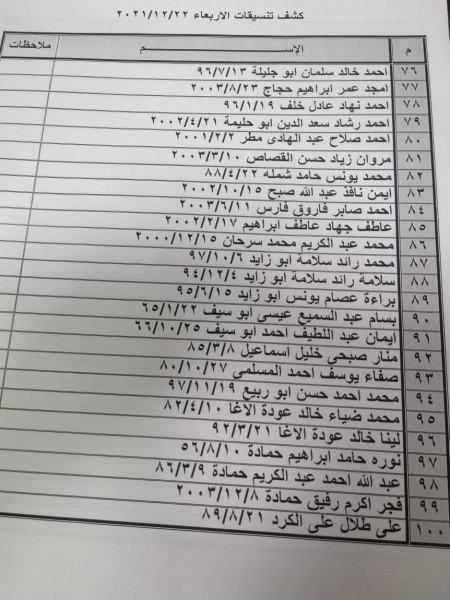 كشف تنسيقات الاربعاء ٢٠٢١/١٢/٢٢
م الإســـم ملاحظات
٧٦ احمد خالد سلمان ابو جليلة ٩٦/٧/١٣
٧٧ امجد عمر ابراهيم حجاج ٢٠٠٣/٨/٢٣
٧٨ احمد نهاد عادل خلف ٩٦/١/١٩
٧٩ احمد رشاد سعد الدين ابو حليمة ٢٠٠٢/٤/٢١
٨٠ احمد صلاح عبد الهادى مطر ٢٠٠١/٢/٢
٨١ مروان زياد حسن القصاص ٢٠٠٣/٣/١٠
٨٢ محمد يونس حامد شمله ٨٨/٤/٢٢
٨٣ ايمن نافذ عبد الله صبح ٢٠٠٢/١٠/١٥
٨٤ احمد صابر فاروق فارس ٢٠٠٣/٦/١١
٨٥ عاطف جهاد عاطف ابراهيم ٢٠٠٢/٢/١٧
٨٦ محمد عبد الكريم محمد سرحان ٢٠٠٠/١٢/١٥
٨٧ محمد رائد سلامة ابو زايد ٩٧/١٠/٦
٨٨ سلامة رائد سلامة ابو زايد ٩٤/١٢/٤
٨٩ براءة عصام يونس ابو زايد ٩٥/٦/١٥
٩٠ بسام عبد السميع عيسى ابو سيف ٦٥/١/٢٢
٩١ ايمان عبد اللطيف احمد ابو سيف ٦٦/١٠/٢٥
٩٢ منار صبحي خليل اسماعيل ٨٥/٣/٨
٩٣ صفاء يوسف احمد المسلمى ٨٠/١٠/٢٧
٩٤ محمد احمد حسن ابو ربيع ٩٧/١١/١٩
٩٥ محمد ضياء خالد عودة الاغا ٨٢/٤/١٠
٩٦ لينا خالد عودة الاغا ٩٢/٣/٢١
٩٧ نوره حامد ابراهيم حمادة ٥٦/٨/١٠
٩٨ عبد الله احمد عبد الكريم حمادة ٨٦/٣/٩
٩٩ فجر اكرم رفيق حمادة ٢٠٠٣/١٢/٨
١٠٠ على طلال على الكرد ٨٩/٨/٢١